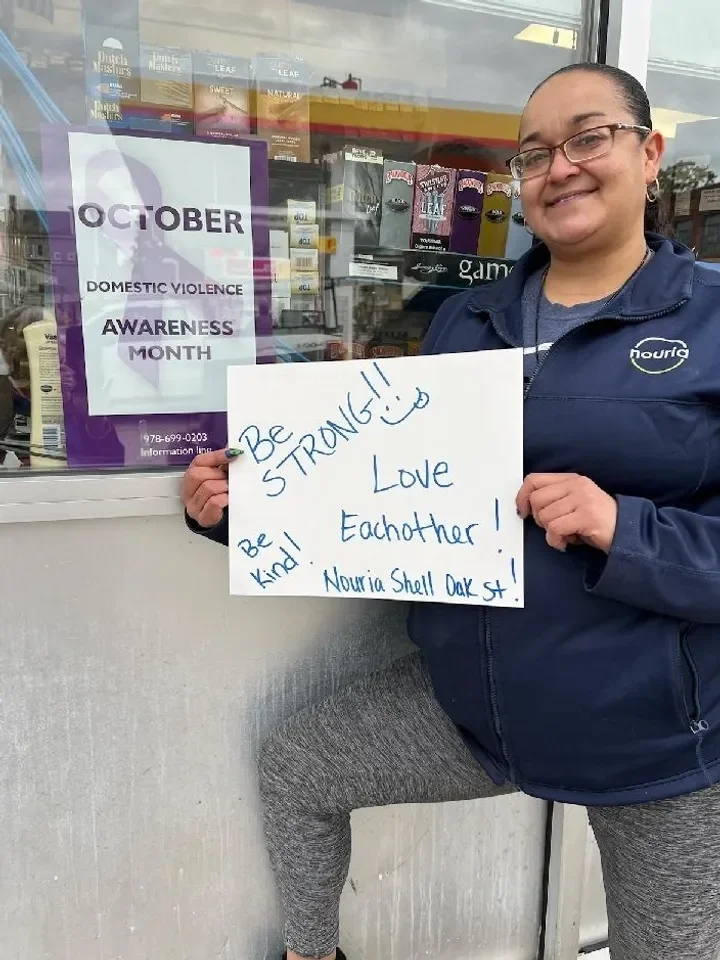 Dutch
Masters
Dutch
Masters
LEAF
SWEET
LEAF
NATURAL
Dutch
Masters
LEAF
game
OCTOBER
DOMESTIC VIOLENCE
AWARENESS
MONTH
978-699-0203
Information line
nouria
Be
STRONG!!
Love
Eachother!
Be
Kind!
Nouria Shell Oak St!